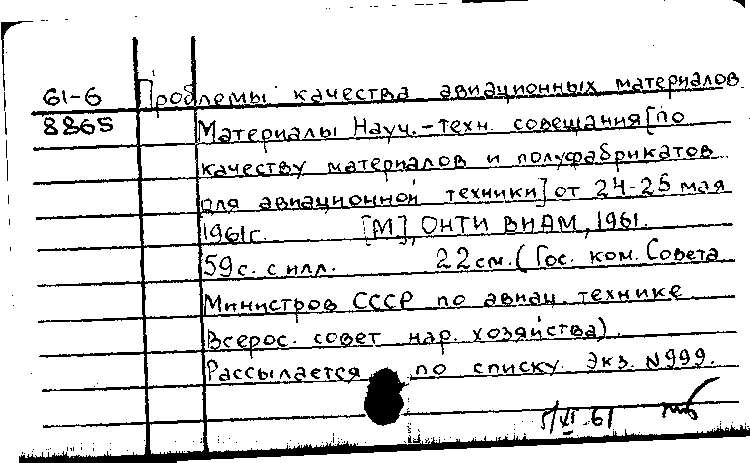 61-6 Проблемы качества авиационных материалов
8865 Материалы Науч.-техн. совещания [по
качеству материалов и полуфабрикатов
для авиационной техники] от 24-25 мая
1961г. [М], ОНТИ ВИАМ, 1961.
59с. с илл. 22см. (Гос. ком. Совета
Министров СССР по авиац. технике
Всерос. совет нар. хозяйства).
Рассылается по списку. Экз. N999.
/VI 61